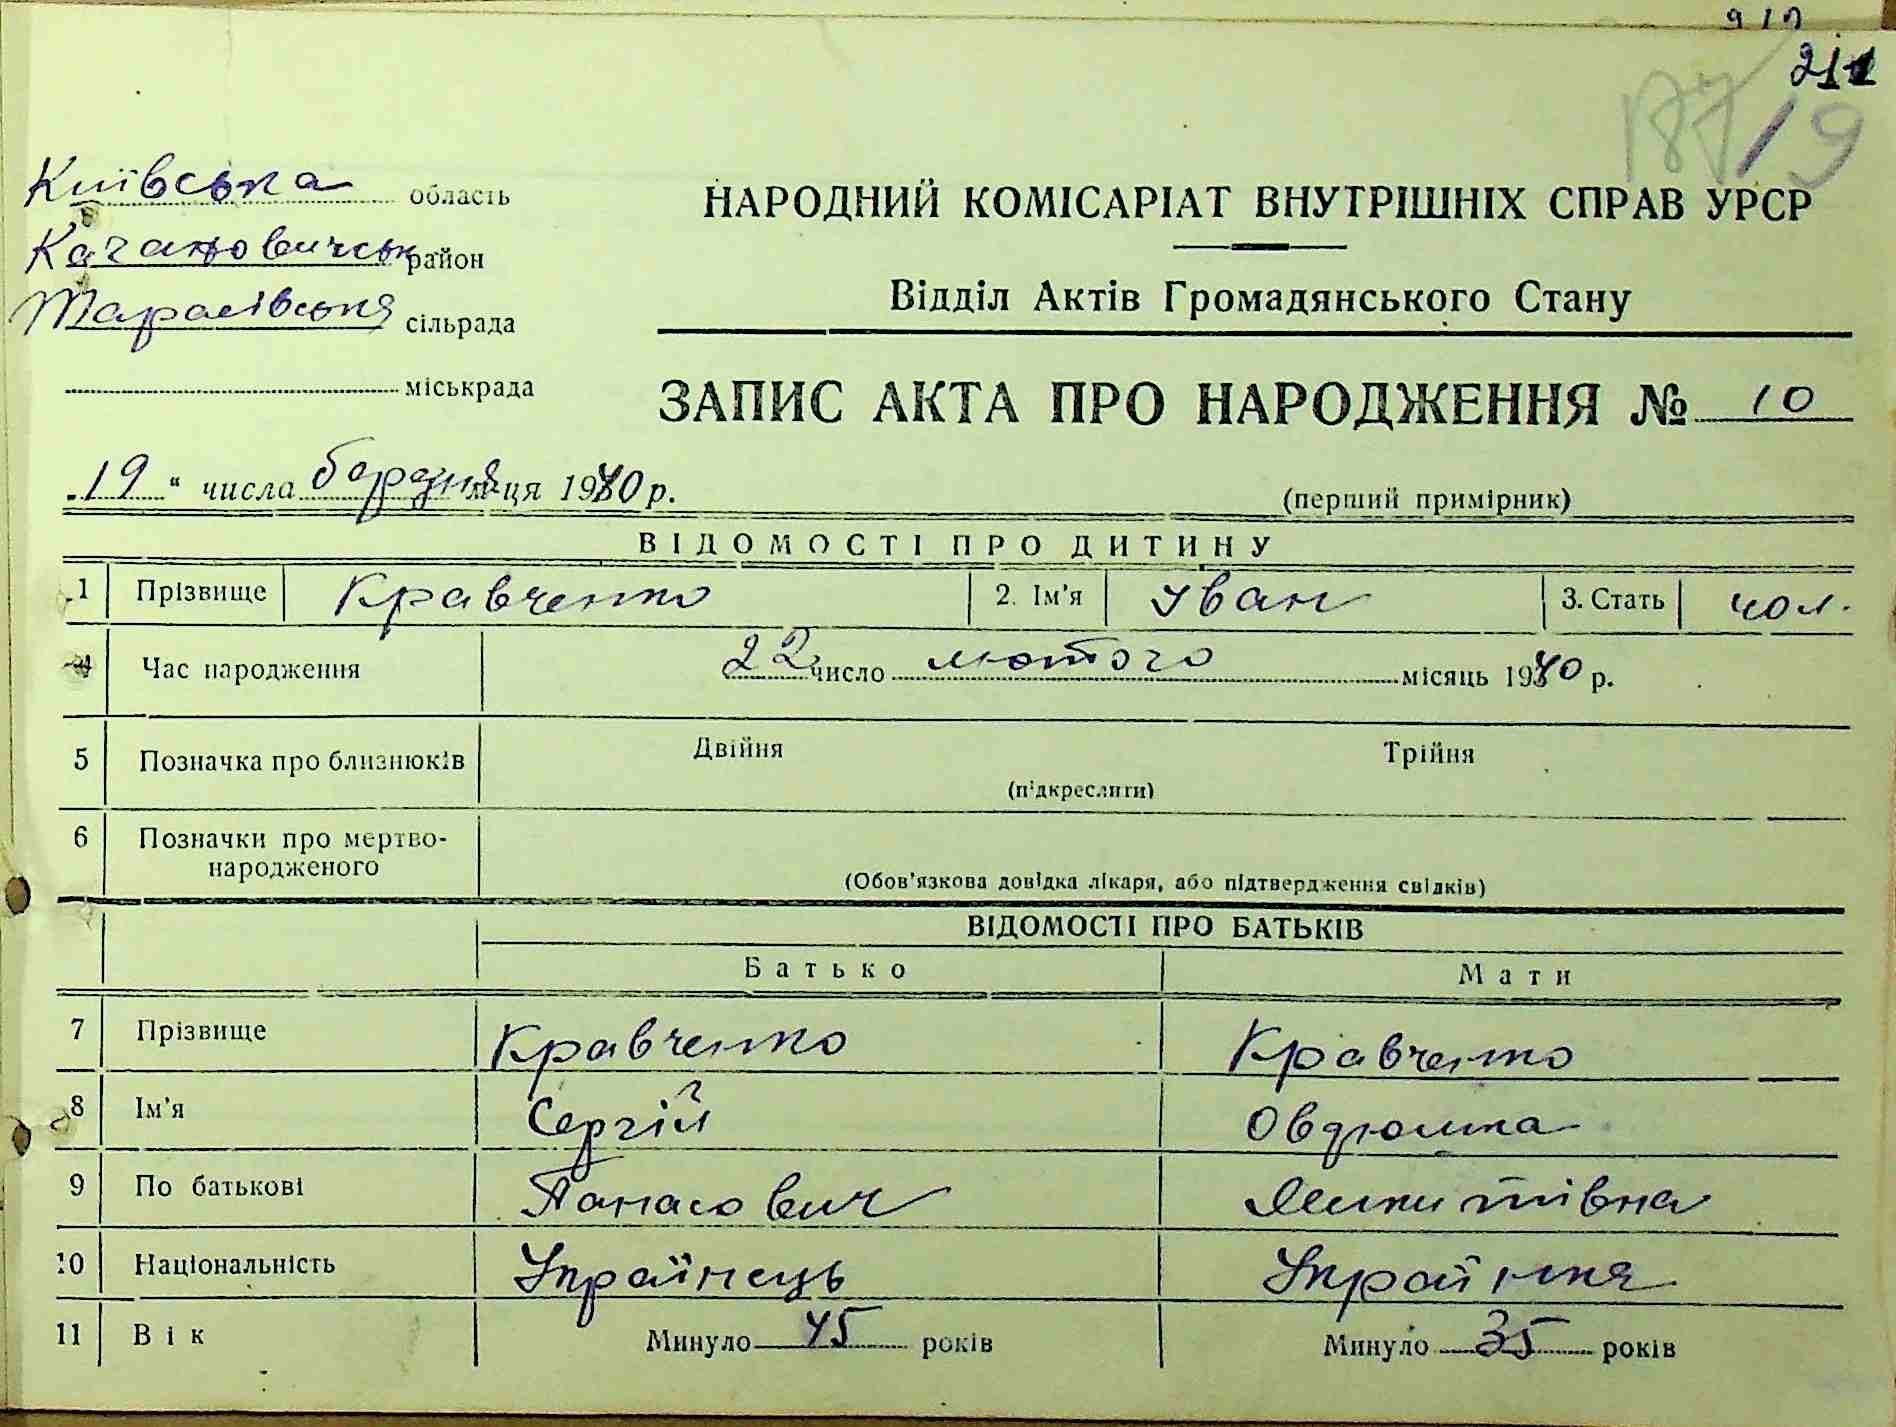 211
187/19
Київська область
Кагановичськ район
Тарасівська сільрада
міськрада
НАРОДНИЙ КОМІСАРІАТ ВНУТРІШНІХ СПРАВ УРСР
Відділ Актів Громадянського Стану
ЗАПИС АКТА ПРО НАРОДЖЕННЯ № 10
„19“ числа б м-ця 1940 р.
(перший примірник)
ВІДОМОСТІ ПРО ДИТИНУ
1 Прізвище Кравченко 2. Ім'я Іван 3. Стать чол.
4 Час народження 22 число лютого місяць 1940 р.
5 Позначка про близнюків Двійня Трійня
(підкреслити)
6 Позначки про мертво-
народженого
(Обов'язкова довідка лікаря, або підтвердження свідків)
ВІДОМОСТІ ПРО БАТЬКІВ
Батько Мати
7 Прізвище Кравченко Кравченко
8 Ім'я Сергій Овдюшка
9 По батькові Панасович Микитівна
10 Національність Українець Українка
11 Вік Минуло 45 років Минуло 35 років